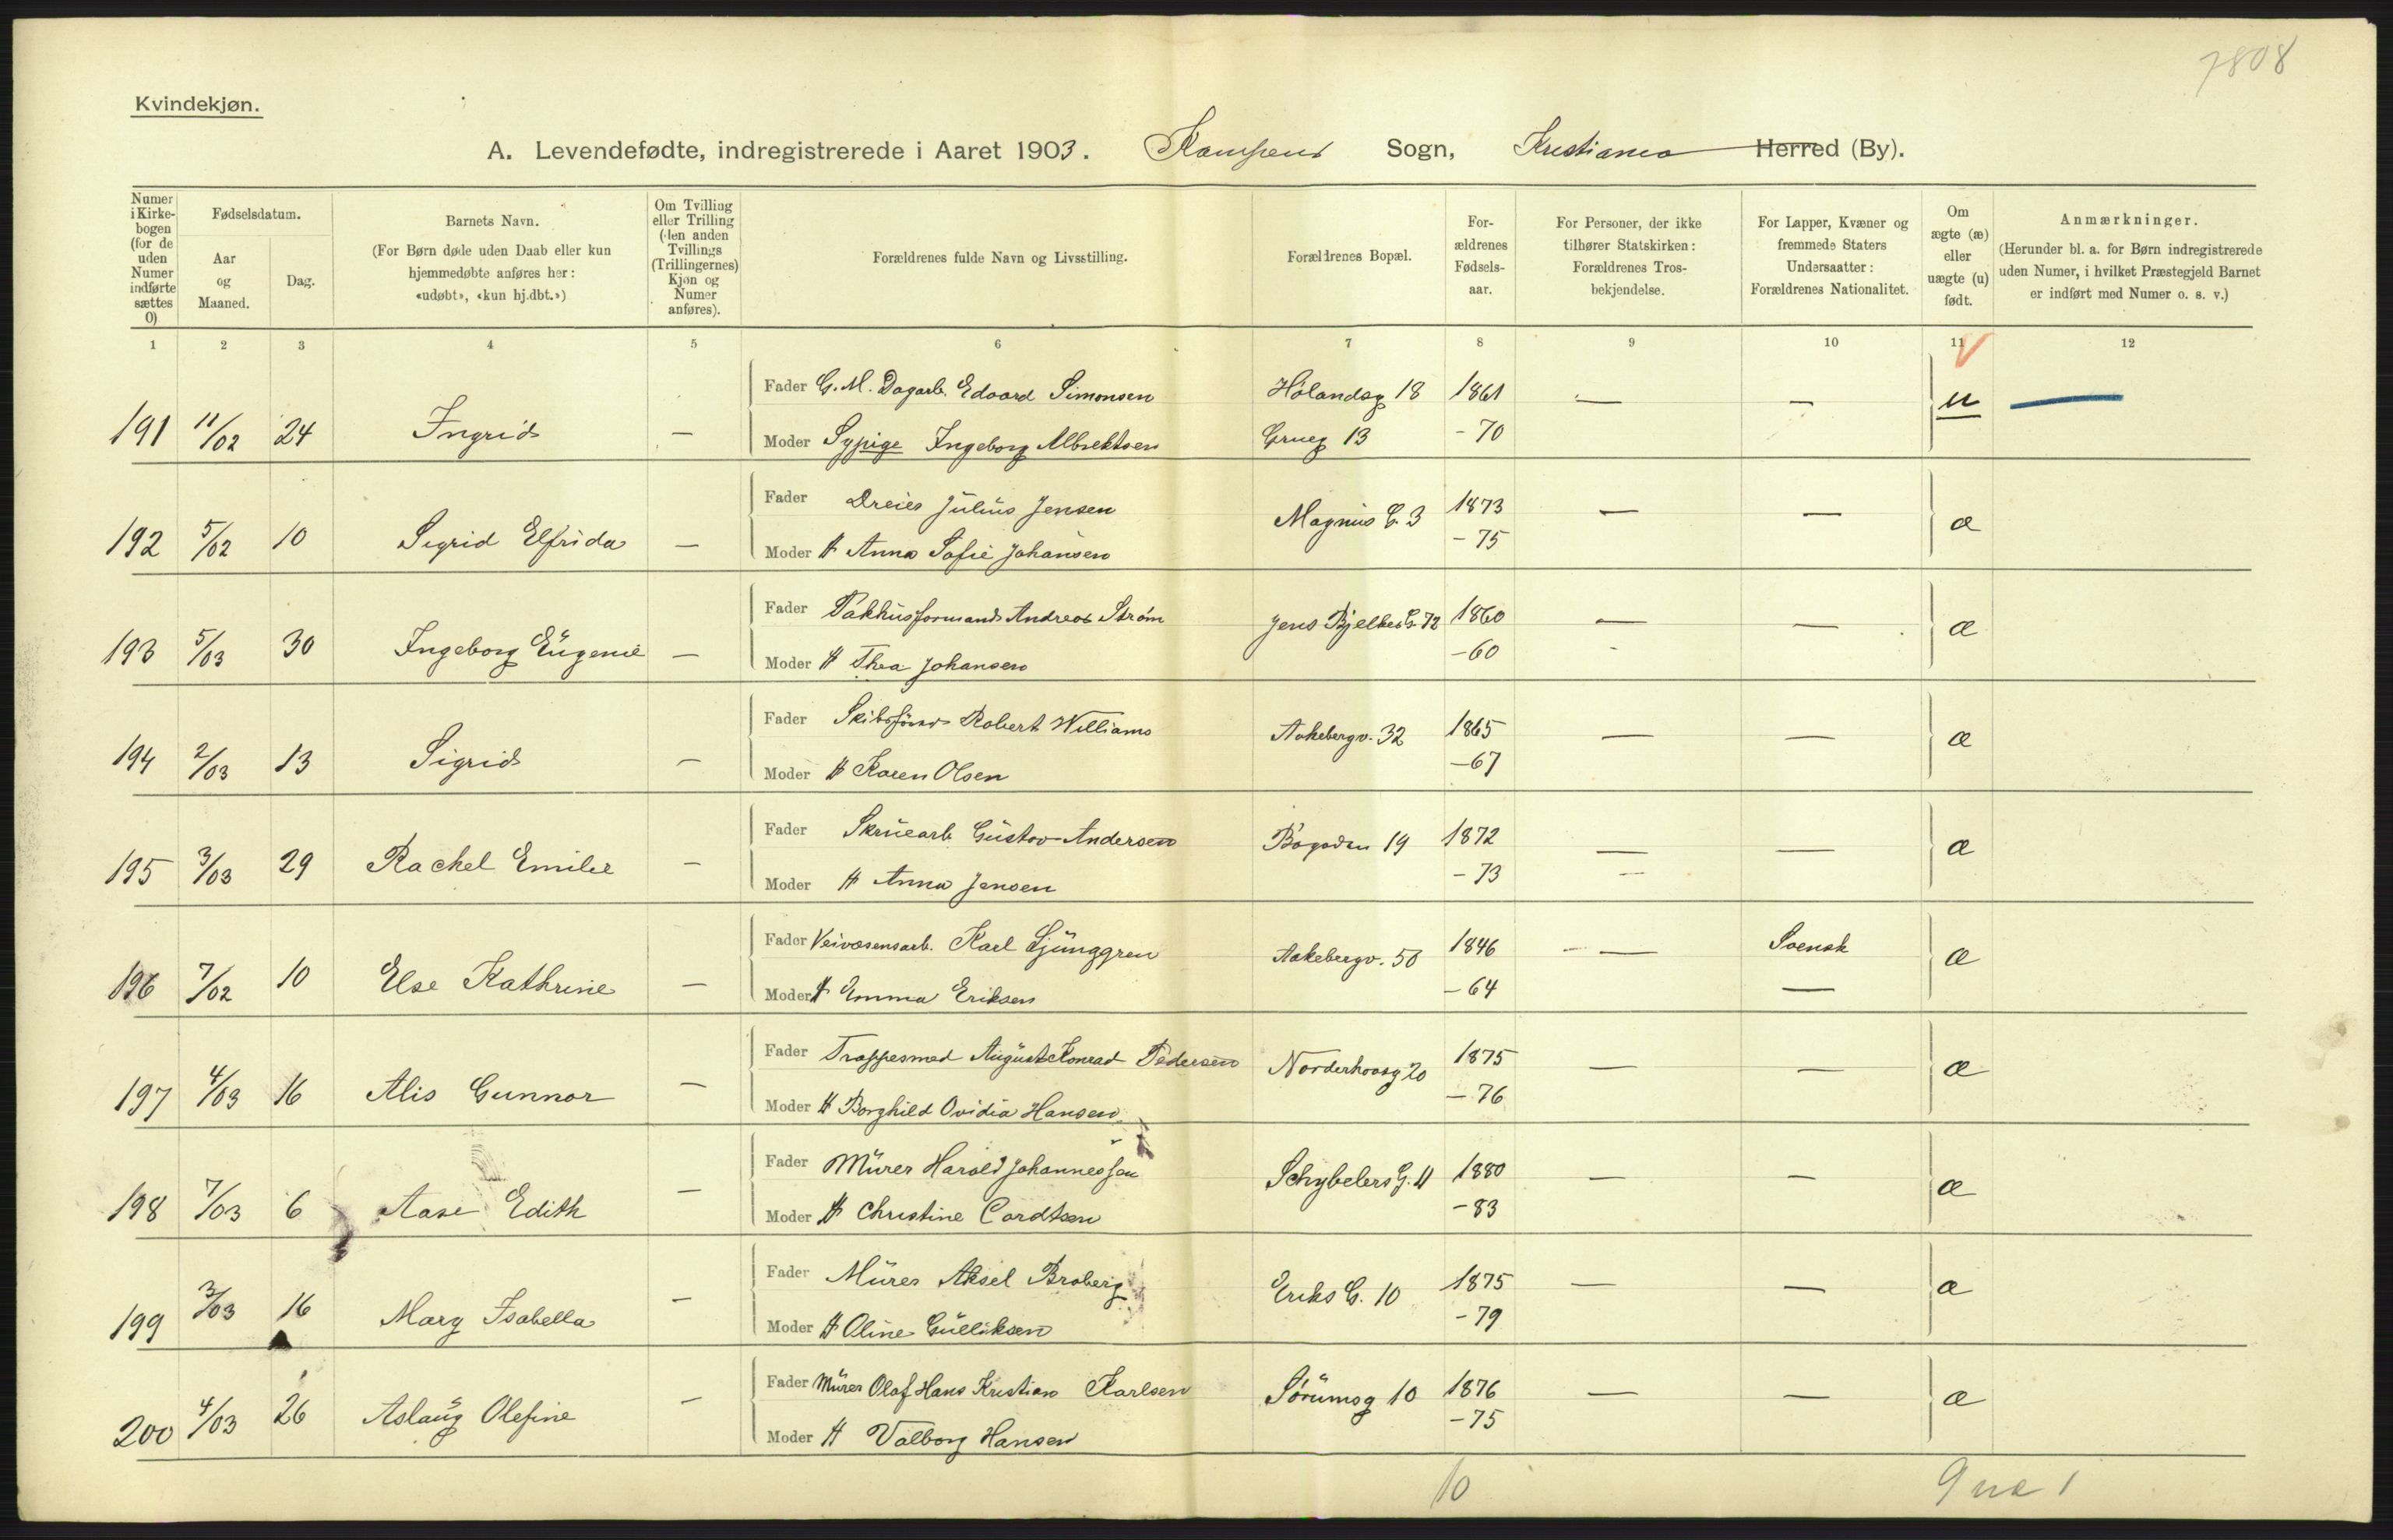 7808
Kvindekjøn.
A. Levendefødte, indregistrerede i Aaret 1903. Kampens Sogn, Kristiania Herred (By).
Numer i Kirkebogen (for de uden Numer indførte sættes 0)
Fødselsdatum.
Aar og Maaned.
Dag.
Barnets Navn.
(For Børn døde uden Daab eller kun hjemmedøbte anføres her: «udøbt», «kun hj.dbt.»)
Om Tvilling eller Trilling (den anden Tvillings (Trillingernes) Kjøn og Numer anføres).
Forældrenes fulde Navn og Livsstilling.
Forældrenes Bopæl.
Forældrenes Fødselsaar.
For Personer, der ikke tilhører Statskirken: Forældrenes Trosbekjendelse.
For Lapper, Kvæner og fremmede Staters Undersaatter: Forældrenes Nationalitet.
Om ægte (æ) eller uægte (u) født.
Anmærkninger.
(Herunder bl. a. for Børn indregistrerede uden Numer, i hvilket Præstegjeld Barnet er indført med Numer o. s. v.)
1 2 3 4 5 6 7 8 9 10 11 12
Fader G. M. Dagarb. Edvard Simonsen Hølandsg 18 1861 — — u —
191 11/02 24 Ingrid — Moder Sypige Ingeborg Albrektsen Grueg 13 - 70
Fader Dreier Julius Jensen Magnus G. 3 1873 — — æ
192 5/02 10 Sigrid Elfrida — Moder H Anna Sofie Johansen - 75
Fader Pakhusformand Andreas Strøm Jens Bjelkes G. 72 1860 — — æ
193 5/03 30 Ingeborg Eugenie — Moder H Thea Johansen - 60
Fader Skibsfører Robert Williams Aakebergv. 32 1865 — — æ
194 2/03 13 Sigrid — Moder H Karen Olsen - 67
Fader Skruearb Gustav Andersen Bøgaden 19 1872 — — æ
195 3/03 29 Rachel Emilie — Moder H Anna Jensen - 73 —
Fader Veivæsensarb. Karl Ljunggren Aakebergv. 50 1846 — Svensk æ
196 7/02 10 Else Kathrine — Moder H Emma Eriksen - 64 —
Fader Trappesmed August Konrad Pedersen Norderhovsg 20 1875 — — æ
197 4/03 16 Alis Gunnor — Moder H Borghild Ovidia Hansen - 76
Fader Murer Harald Johannessen Schybelers G. 11 1880 — — æ
198 7/03 6 Aase Edith — Moder H Christine Cordtsen - 83
Fader Murer Aksel Broberg Eriks G. 10 1875 — — æ
199 3/03 16 Mary Isabella — Moder H Oline Gulliksen - 79
Fader Murer Olaf Hans Kristian Karlsen Sørumsg 10 1876 — — æ
200 4/03 26 Aslaug Olefine — Moder H Valborg Hansen - 75
10 9 1